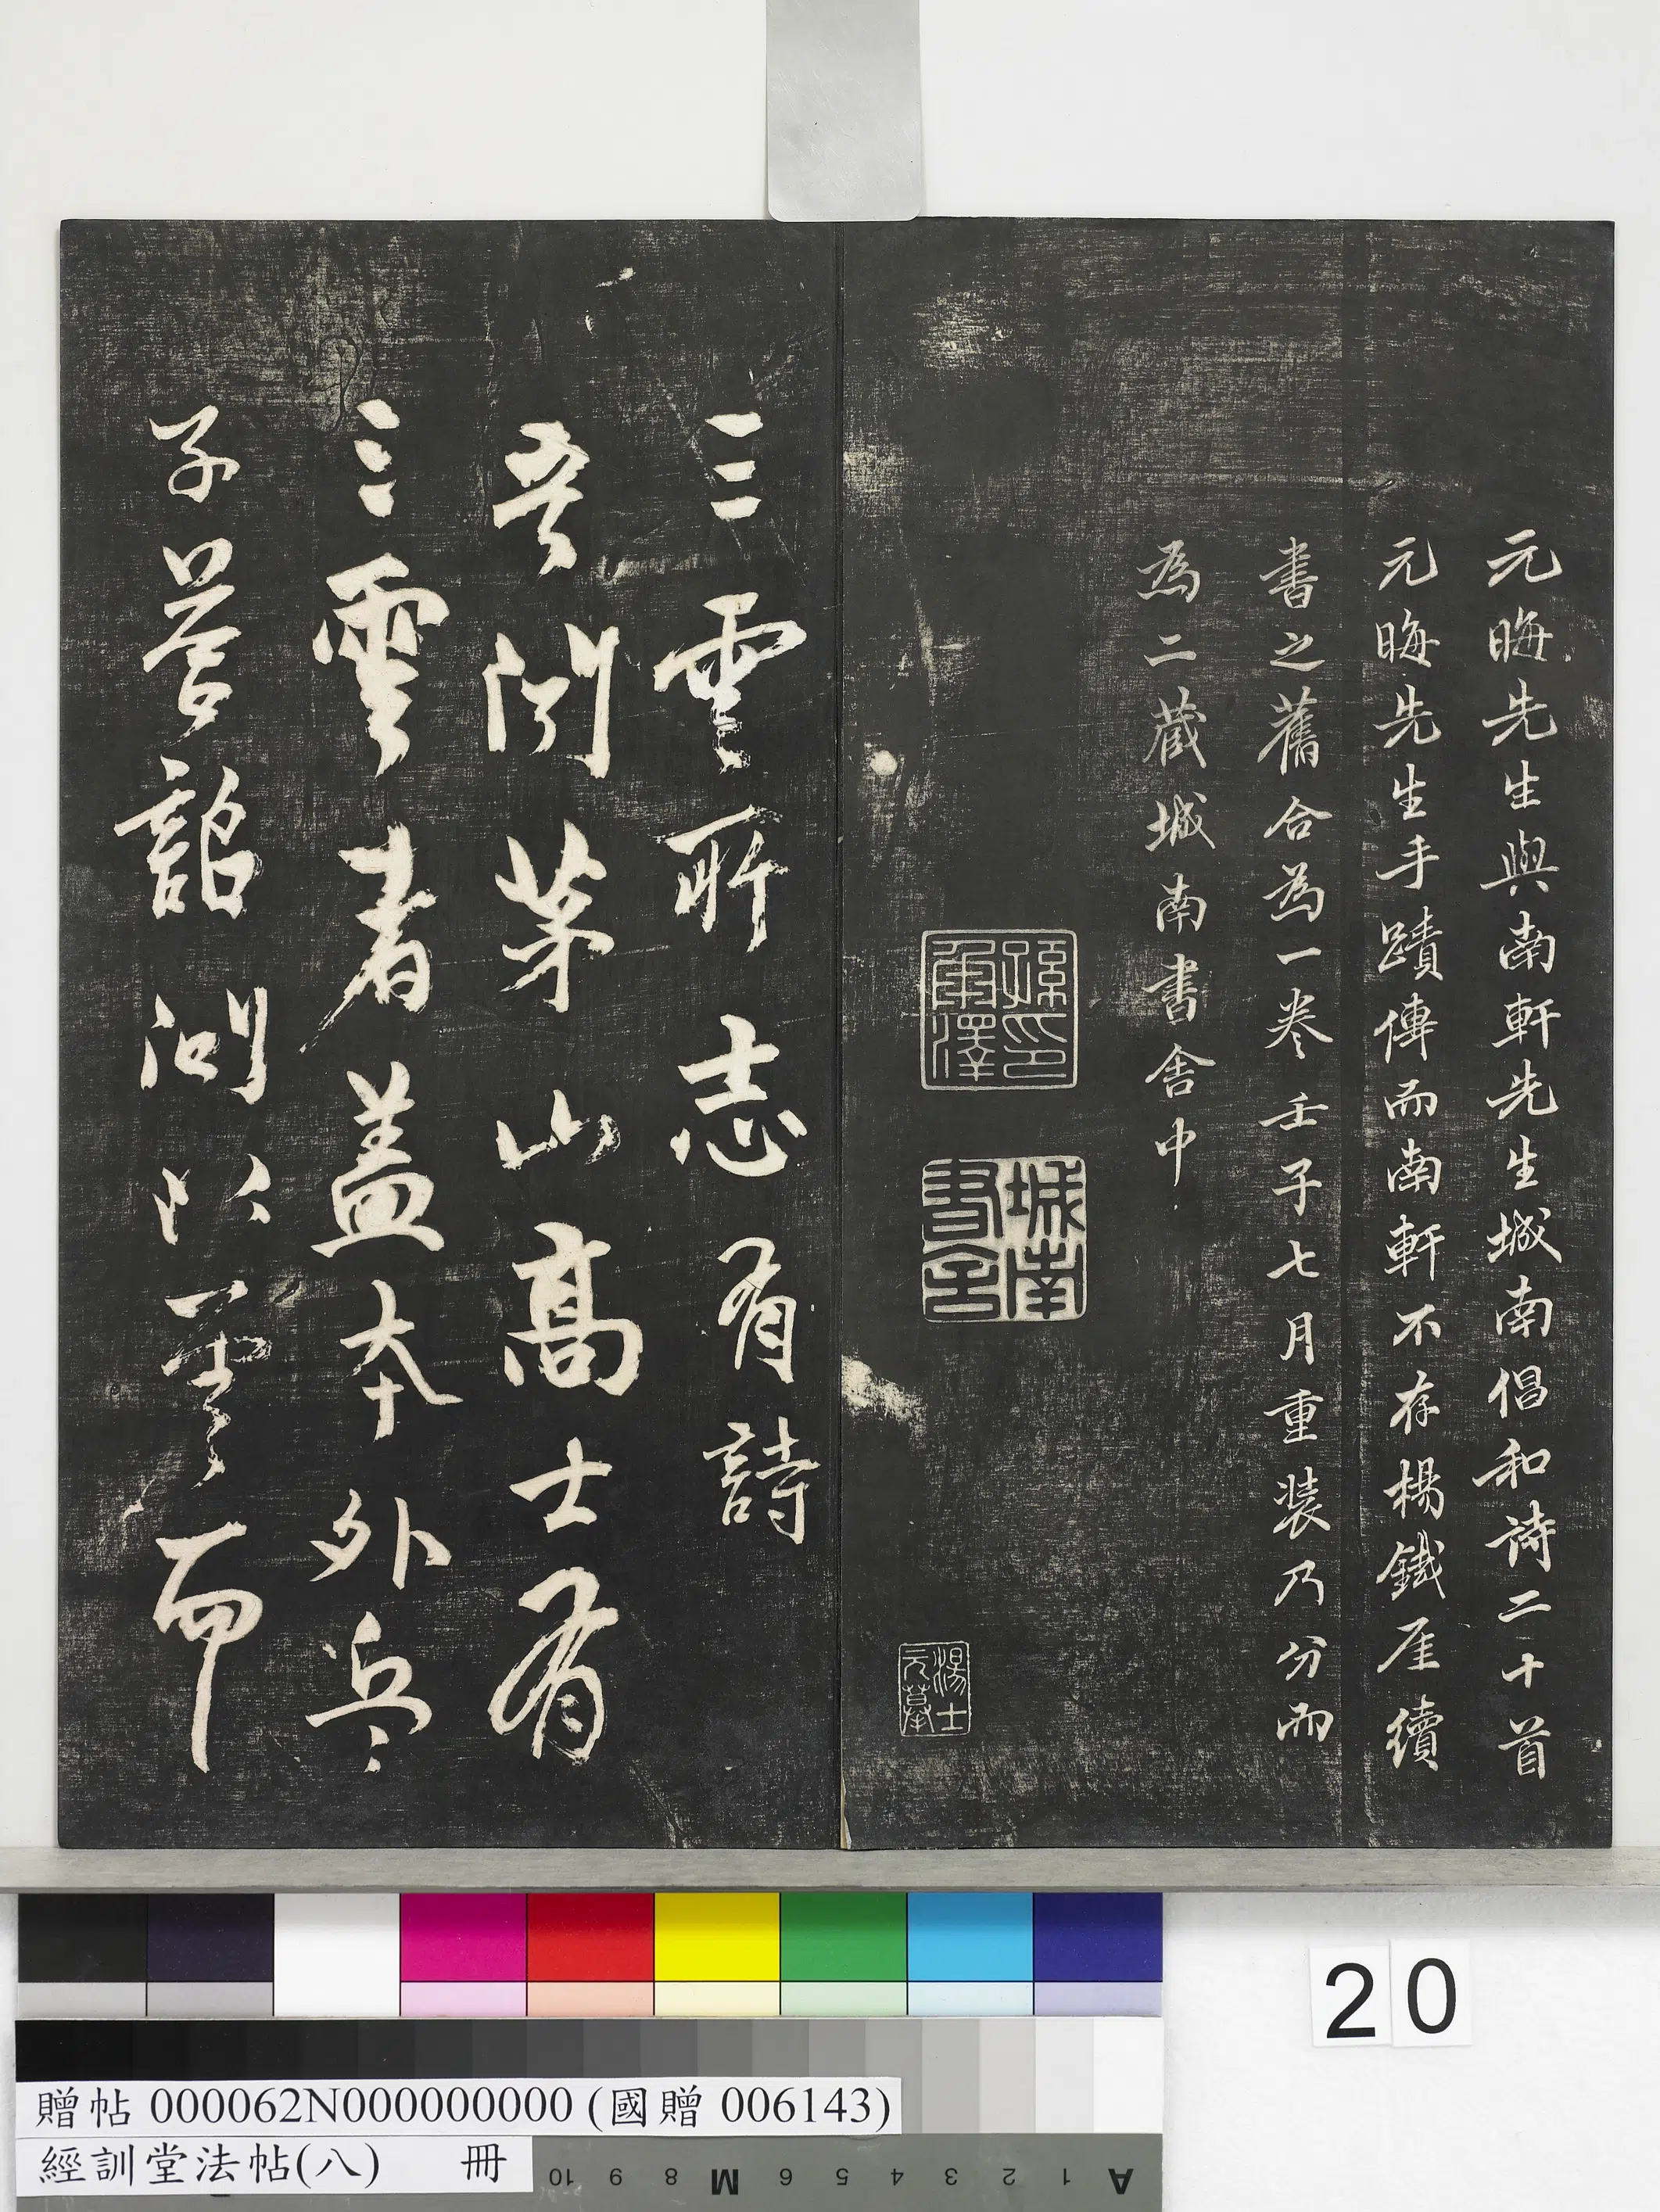 元晦先生與南軒先生城南倡和诗二十首
元晦先生手蹟傳而南軒不存楊鐵厓續
書之舊合為一卷壬子七月重装乃分而
為二藏城南書舍中
孫印
承澤
城南
書舍
三雲所志有詩
吾聞茅山高士有
三雲者盖本外兵
子
詔
以雲而
20
贈帖 000062N000000000 (國贈 006143)
經訓堂法帖(八) 冊
10 9 8 M 6 5 4 3 2 1 A